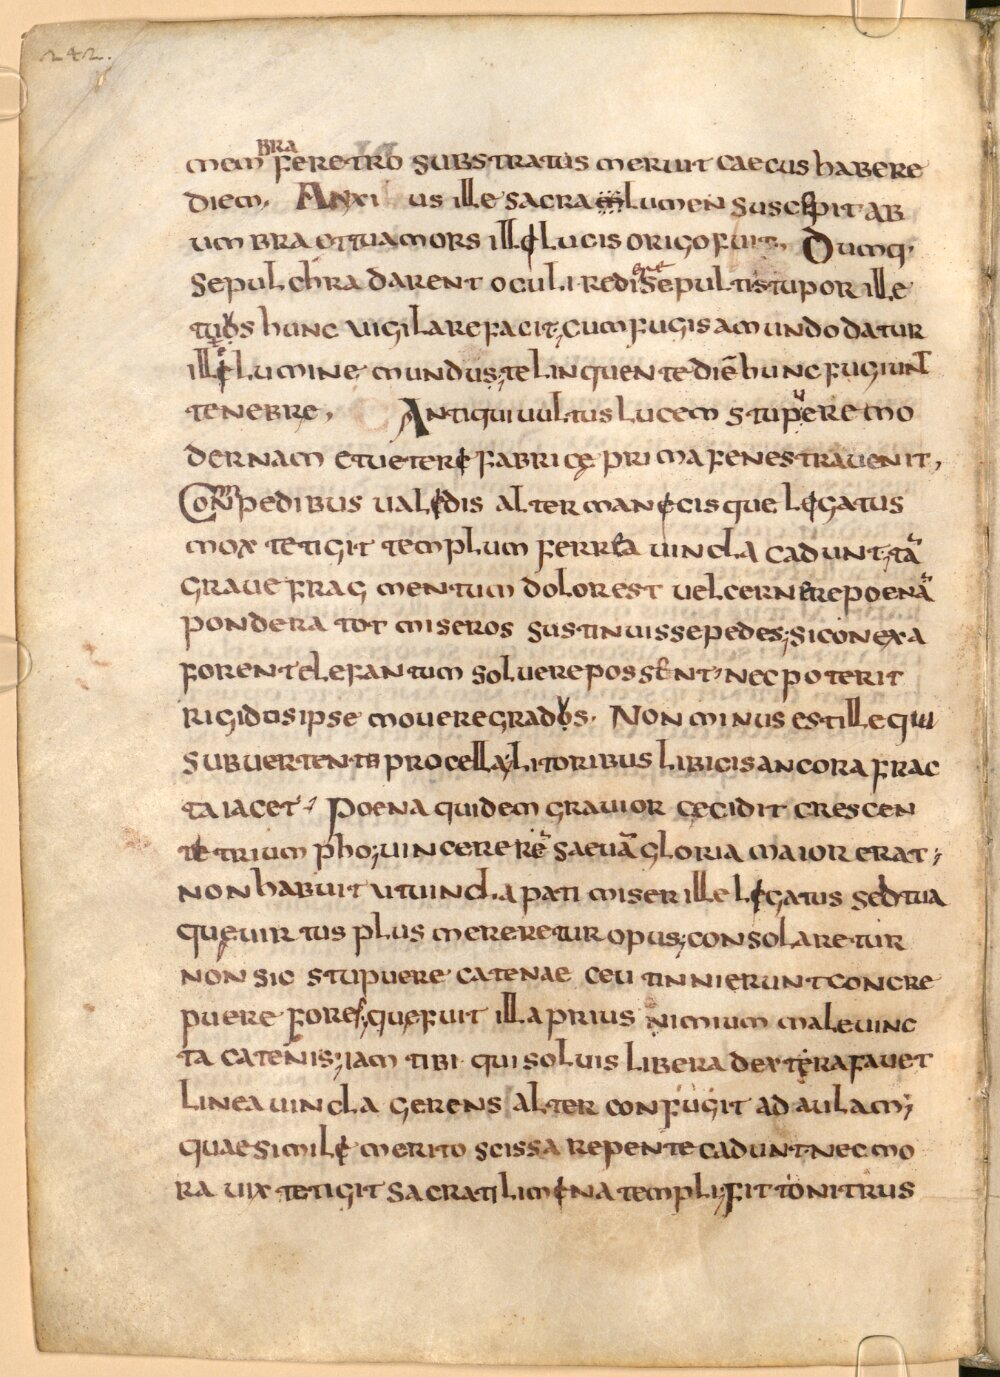 242.
membra feretro substratus meruit caecus habere
diem. Anxi us ille sacra lumen suscepit ab
umbra et tua mors illę lucis origo fuit. Dumq·
sepulchra darent oculi redierunt sepultis tupor ille
tuos hunc vigilare facit; cum fugis a mundo datur
illę lumine mundus; te linquente diē hunc fugiunt
tenebre, Antiqui vultus lucem stupuere mo
dernam et veterę fabricę prima fenestra venit,
Compedibus valędis alter manęcisque lęgatus
mox tetigit templum ferrea vincla cadunt; tā
grave fragmentum dolor est vel cernere poenā
pondera tot miseros sustinuisse pedes; si conexa
foren t elefantum solvere possent, nec poterit
rigidus ipse movere gradus. Non minus est ille qui
subvertente procella; litoribus libicis ancora frac
ta iacet; Poena quidem gravior cęcidit crescen
te trium pho; vincere rē saevā gloria maior erat;
non habuit ut vincla pati miser ille lęgatus sed tua
quę virtus plus mereretur opus; consolaretur
non sic stupuere catenae ceu tinnierunt concre
puere fores; quę fuit illa prius nimium male vinc
ta catenis; iam tibi qui solvis libera dextera favet
linea vincla gerens alter confugit ad aulam;
quae similę merito scissa repente cadunt nec mo
ra vix tetigit sacrati limęna templi; fit tonitrus